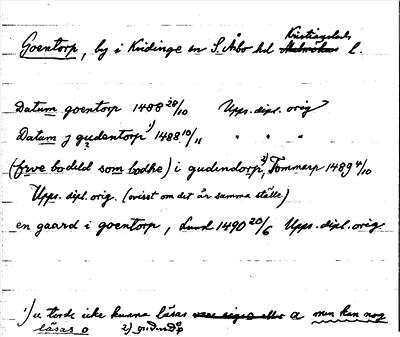 Kristianstads
Goentorp, by i Kvidinge sn S. Åsbo hd Malmöhus l.
Datum goentorp 1488 28/10 Upps. dipl. orig
Datum j gudentorp 1) 1488 10/11 " " "
(frve bodeld som bodhe) i gudendorp 2), Tommarp 1489 4/10
Upps. dipl. orig. (ovisst om det är samma ställe)
en gaard i goentorp, Lund 1490 20/6 Upps. dipl. orig.
1) u torde icke kunna läsas a men kan nog
läsas o 2)